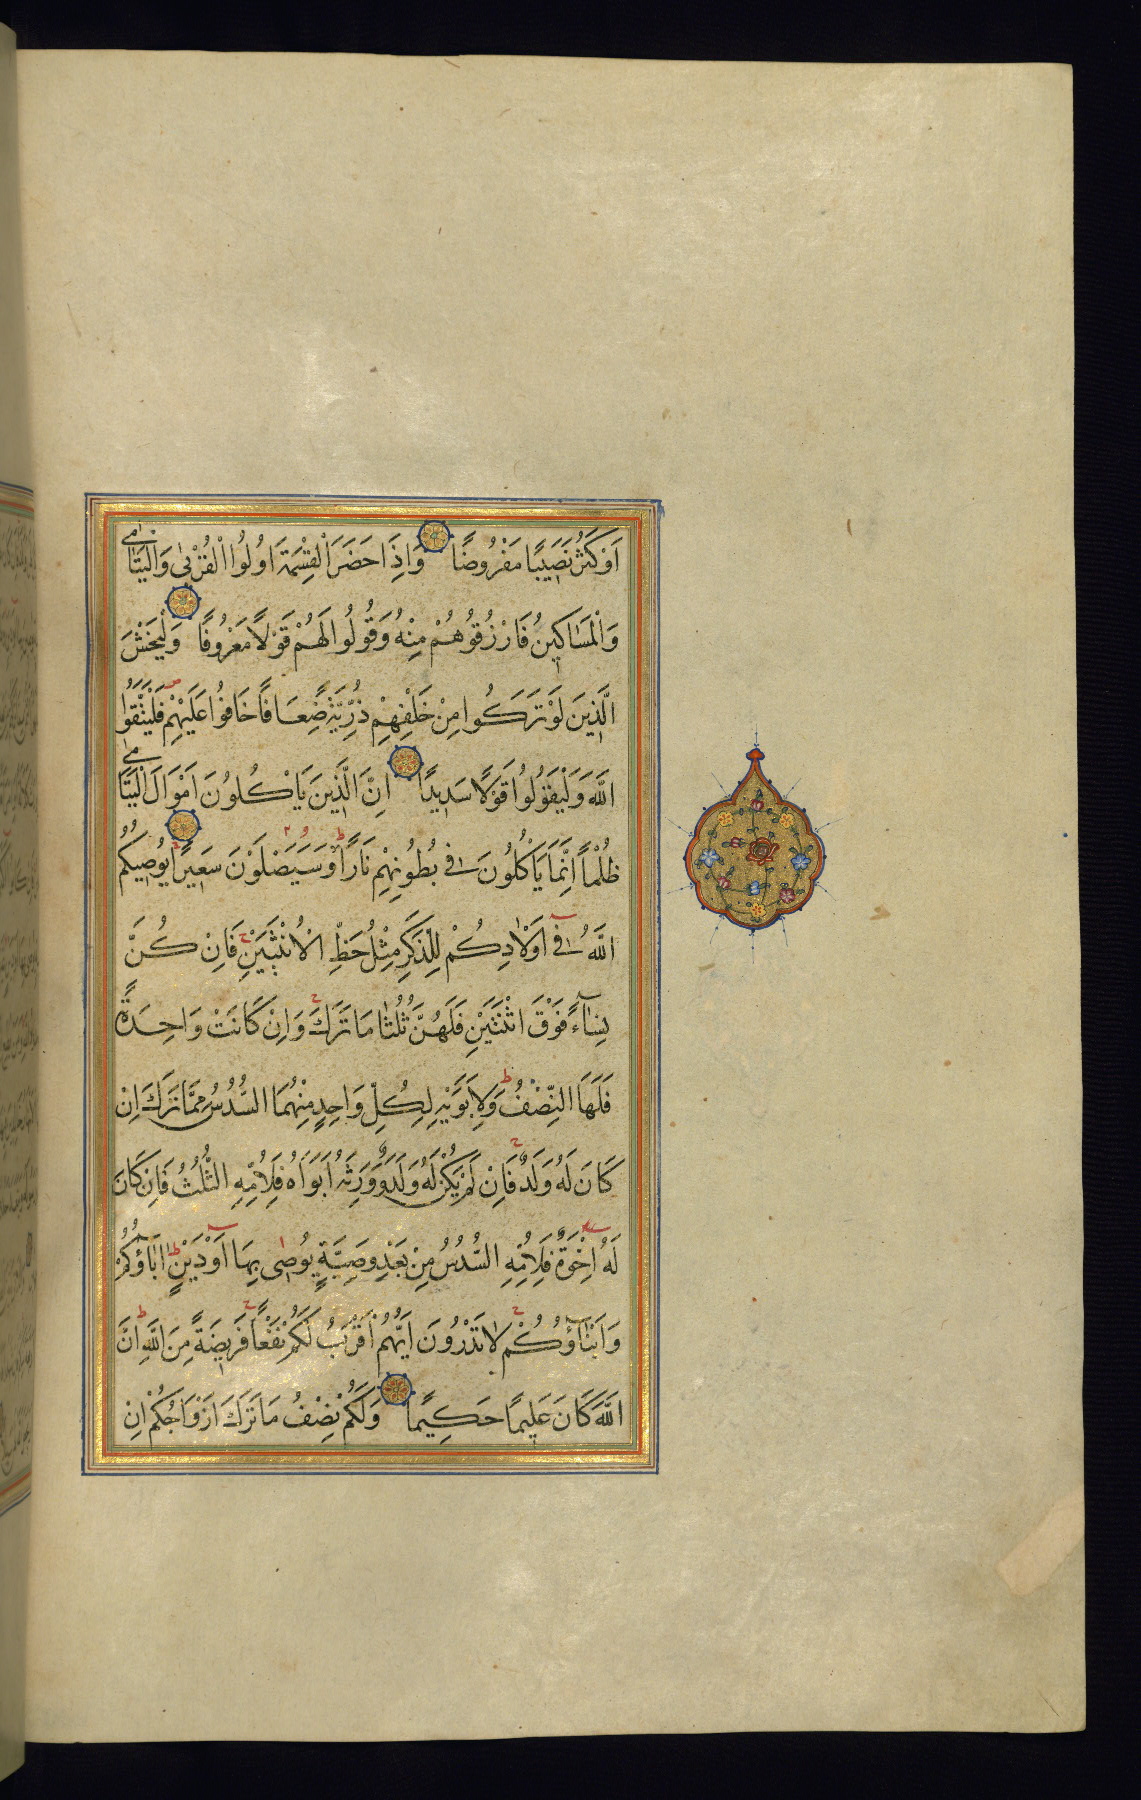 اَوْ كَثُرَ نَصِيبًا مَفْرُوضًا وَاِذَا حَضَرَ الْقِسْمَةَ اُولُوا الْقُرْبٰى وَالْيَتَامٰى
وَالْمَسَاكِينُ فَارْزُقُوهُمْ مِنْهُ وَقُولُوا لَهُمْ قَوْلًا مَعْرُوفًا وَلْيَخْشَ
الَّذِينَ لَوْ تَرَكُوا مِنْ خَلْفِهِمْ ذُرِّيَّةً ضِعَافًا خَافُوا عَلَيْهِمْ فَلْيَتَّقُوا
اللَّهَ وَلْيَقُولُوا قَوْلًا سَدِيدًا اِنَّ الَّذِينَ يَاْكُلُونَ اَمْوَالَ الْيَتَامٰى
ظُلْمًا اِنَّمَا يَاْكُلُونَ فِى بُطُونِهِمْ نَارًا وَسَيَصْلَوْنَ سَعِيرًا يُوصِيكُمُ
اللَّهُ فِى اَوْلَادِكُمْ لِلذَّكَرِ مِثْلُ حَظِّ الْاُنْثَيَيْنِ فَاِنْ كُنَّ
نِسَآءً فَوْقَ اثْنَتَيْنِ فَلَهُنَّ ثُلُثَا مَا تَرَكَ وَاِنْ كَانَتْ وَاحِدَةً
فَلَهَا النِّصْفُ وَلِاَبَوَيْهِ لِكُلِّ وَاحِدٍ مِنْهُمَا السُّدُسُ مِمَّا تَرَكَ اِنْ
كَانَ لَهُ وَلَدٌ فَاِنْ لَمْ يَكُنْ لَهُ وَلَدٌ وَوَرِثَهُ اَبَوَاهُ فَلِاُمِّهِ الثُّلُثُ فَاِنْ كَانَ
لَهُ اِخْوَةٌ فَلِاُمِّهِ السُّدُسُ مِنْ بَعْدِ وَصِيَّةٍ يُوصِى بِهَا اَوْ دَيْنٍ اٰبَآؤُكُمْ
وَاَبْنَآؤُكُمْ لَا تَدْرُونَ اَيُّهُمْ اَقْرَبُ لَكُمْ نَفْعًا فَرِيضَةً مِنَ اللَّهِ اِنَّ
اللَّهَ كَانَ عَلِيمًا حَكِيمًا وَلَكُمْ نِصْفُ مَا تَرَكَ اَزْوَاجُكُمْ اِنْ